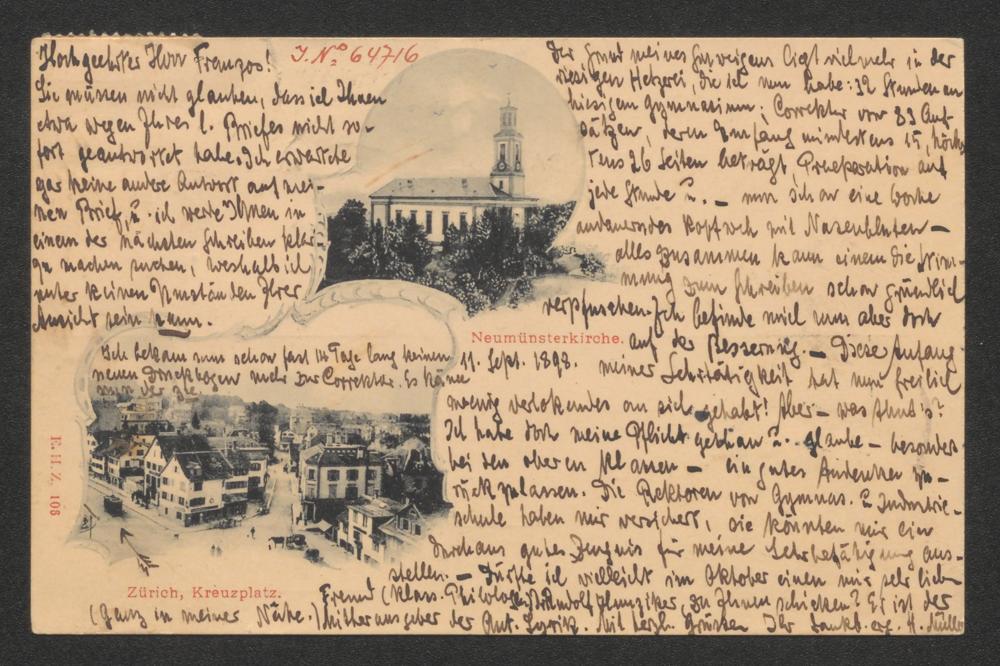 Hochgeehrter Herr Franzos!
J. Nº 64716
Sie müssen nicht glauben, dass ich Ihnen
etwa wegen Ihres l. Briefes nicht so-
fort geantwortet habe. Ich erwartete
gar keine andere Antwort auf mei-
nen Brief, u. ich werde Ihnen in
einem der nächsten Schreiben klar
zu machen suchen, weshalb ich
unter keinen Umständen Ihrer
Ansicht sein kann.
Ich bekam nun schon fast 14 Tage lang keinen
neuen Druckbogen mehr zur Correktur. Es käme
mir der
E. H. Z. 106
Zürich, Kreuzplatz.
(Ganz in meiner Nähe.)
Neumünsterkirche.
11. Sept. 1898.
Der Grund meines Schweigens liegt vielmehr in der
riesigen Hetzerei, die ich nun habe: 32 Stunden am
hiesigen Gymnasium; Correktur von 83 Auf-
sätzen, deren Umfang mindestens 15, höchs-
tens 26 Seiten beträgt, Praeparation auf
jede Stunde u. – nun schon eine Woche
andauerndes Kopfweh mit Nasenbluten –
alles zusammen kann einem die Stim-
mung zum Schreiben schon gründlich
verpfuschen. Ich befinde mich nun aber doch
auf der Besserung. – Diese Anfang
meiner Lehrtätigkeit hat nun freilich
wenig verlokendes an sich gehabt! Aber – was thut's?
Ich habe doch meine Pflicht gethan u. glaube – besonders
bei den oberen Klassen – ein gutes Andenken zu-
rückzulassen. Die Rektoren von Gymnas. u. Industrie-
schule haben mir versichert, sie könnten mir ein
durchaus gutes Zeugnis für meine Lehrbefähigung aus-
stellen. – Dürfte ich vielleicht im Oktober einen mir sehr lieb
Freund (klass. Philologe) Rudolf Hunziker, zu Ihnen schicken? Es ist der
Mitherausgeber der Ant. Lyrik. Mit herzl. Grüssen Ihr dankb. erg. H. Müller